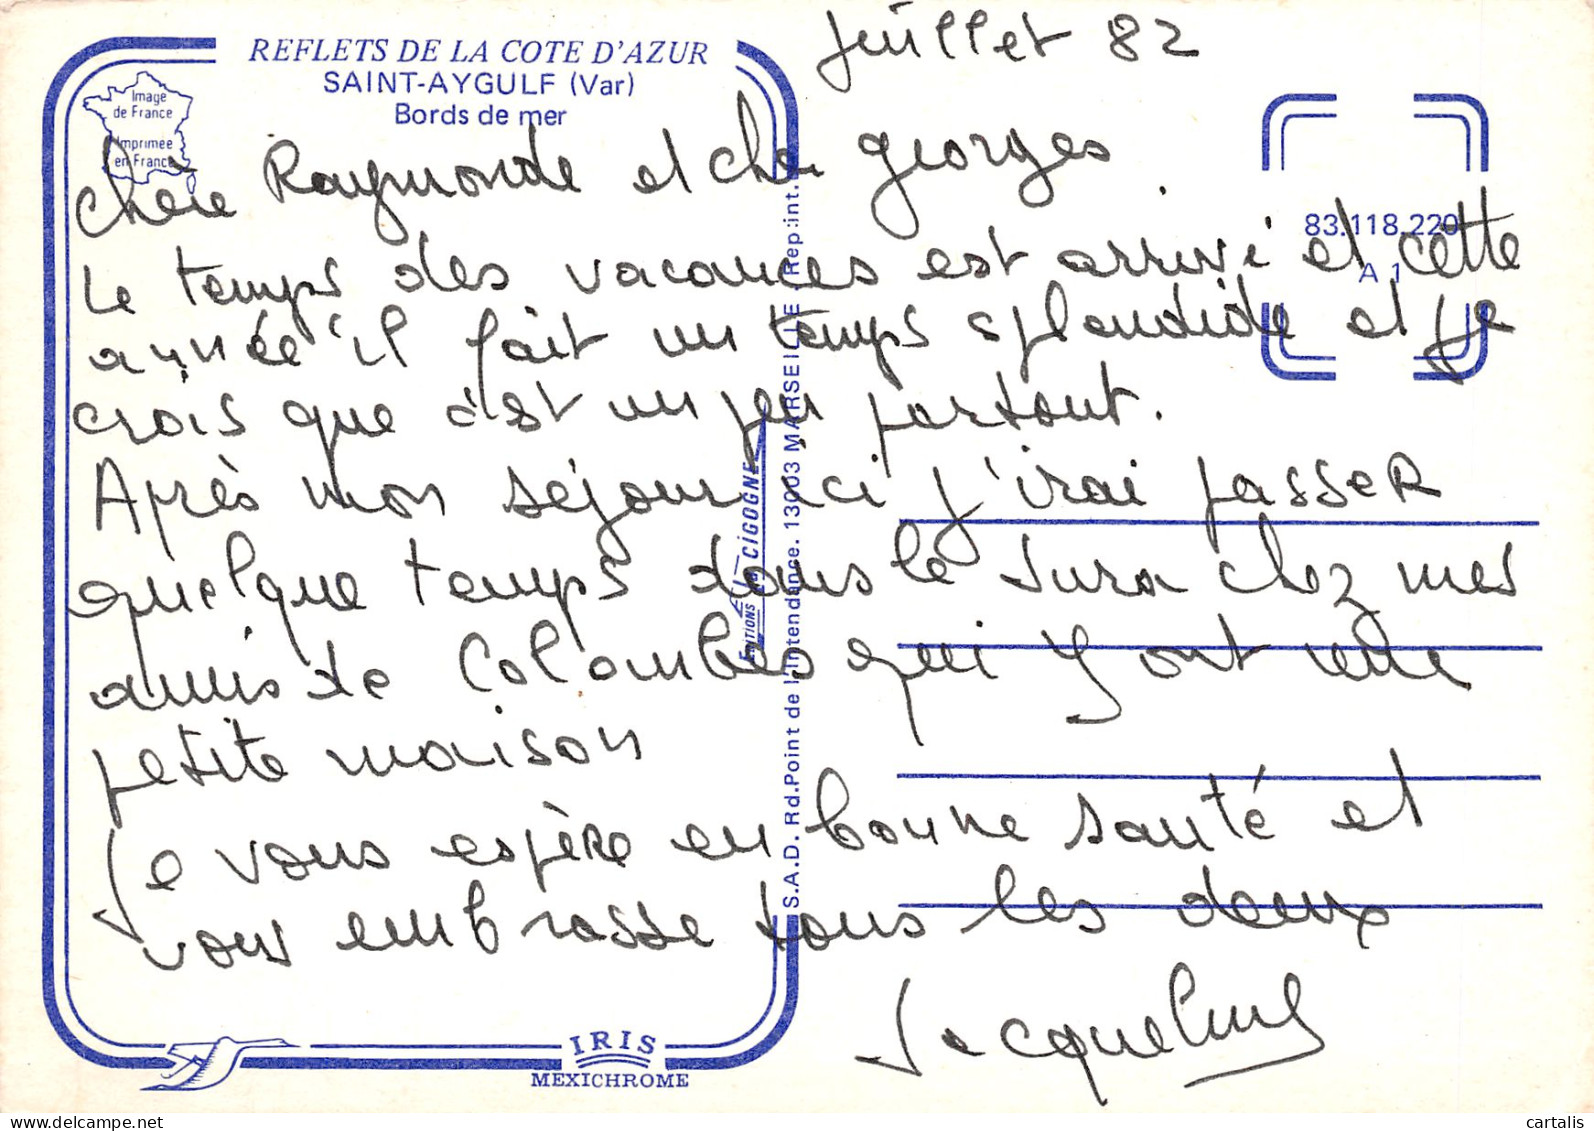 REFLETS DE LA COTE D'AZUR
SAINT-AYGULF (Var)
Bords de mer
Image
de France
Imprimée
en France
Juillet 82
Chère Raymonde et cher Georges
Le temps des vacances est arrivé et cette
année il fait un temps splendide et je
crois que c'est un peu partout.
Après mon séjour ici j'irai passer
quelque temps dans le Jura chez mes
amis de Colombes qui y ont une
petite maison
Je vous espère en bonne santé et
vous embrasse tous les deux
Jacqueline
83.118.220
A 1
Editions la CIGOGNE
S.A.D. Rd.Point de l'Intendance. 13003 MARSEILLE Rep.int.
IRIS
MEXICHROME
cartalis
delcampe.net